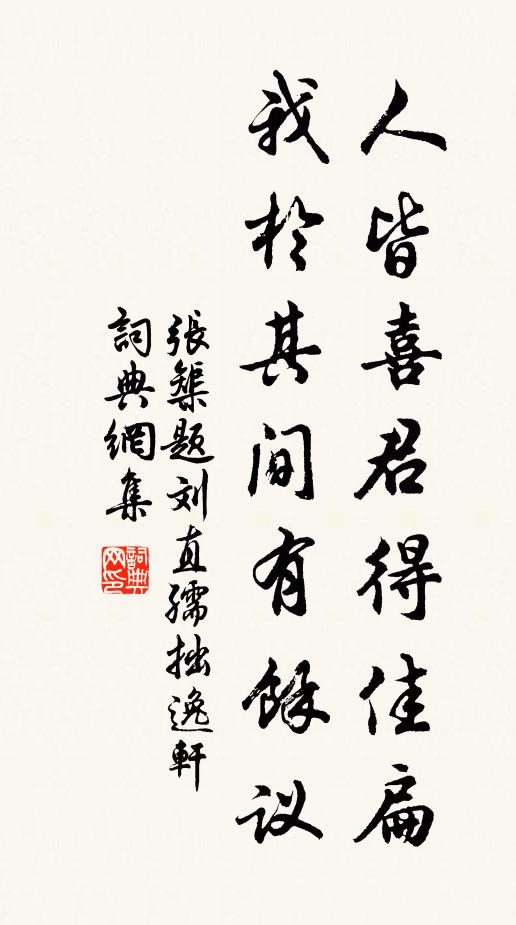 人皆喜君得佳扁
我於其間有餘议
張榘题刘直孺拙逸軒
詞典網集
詞典網印